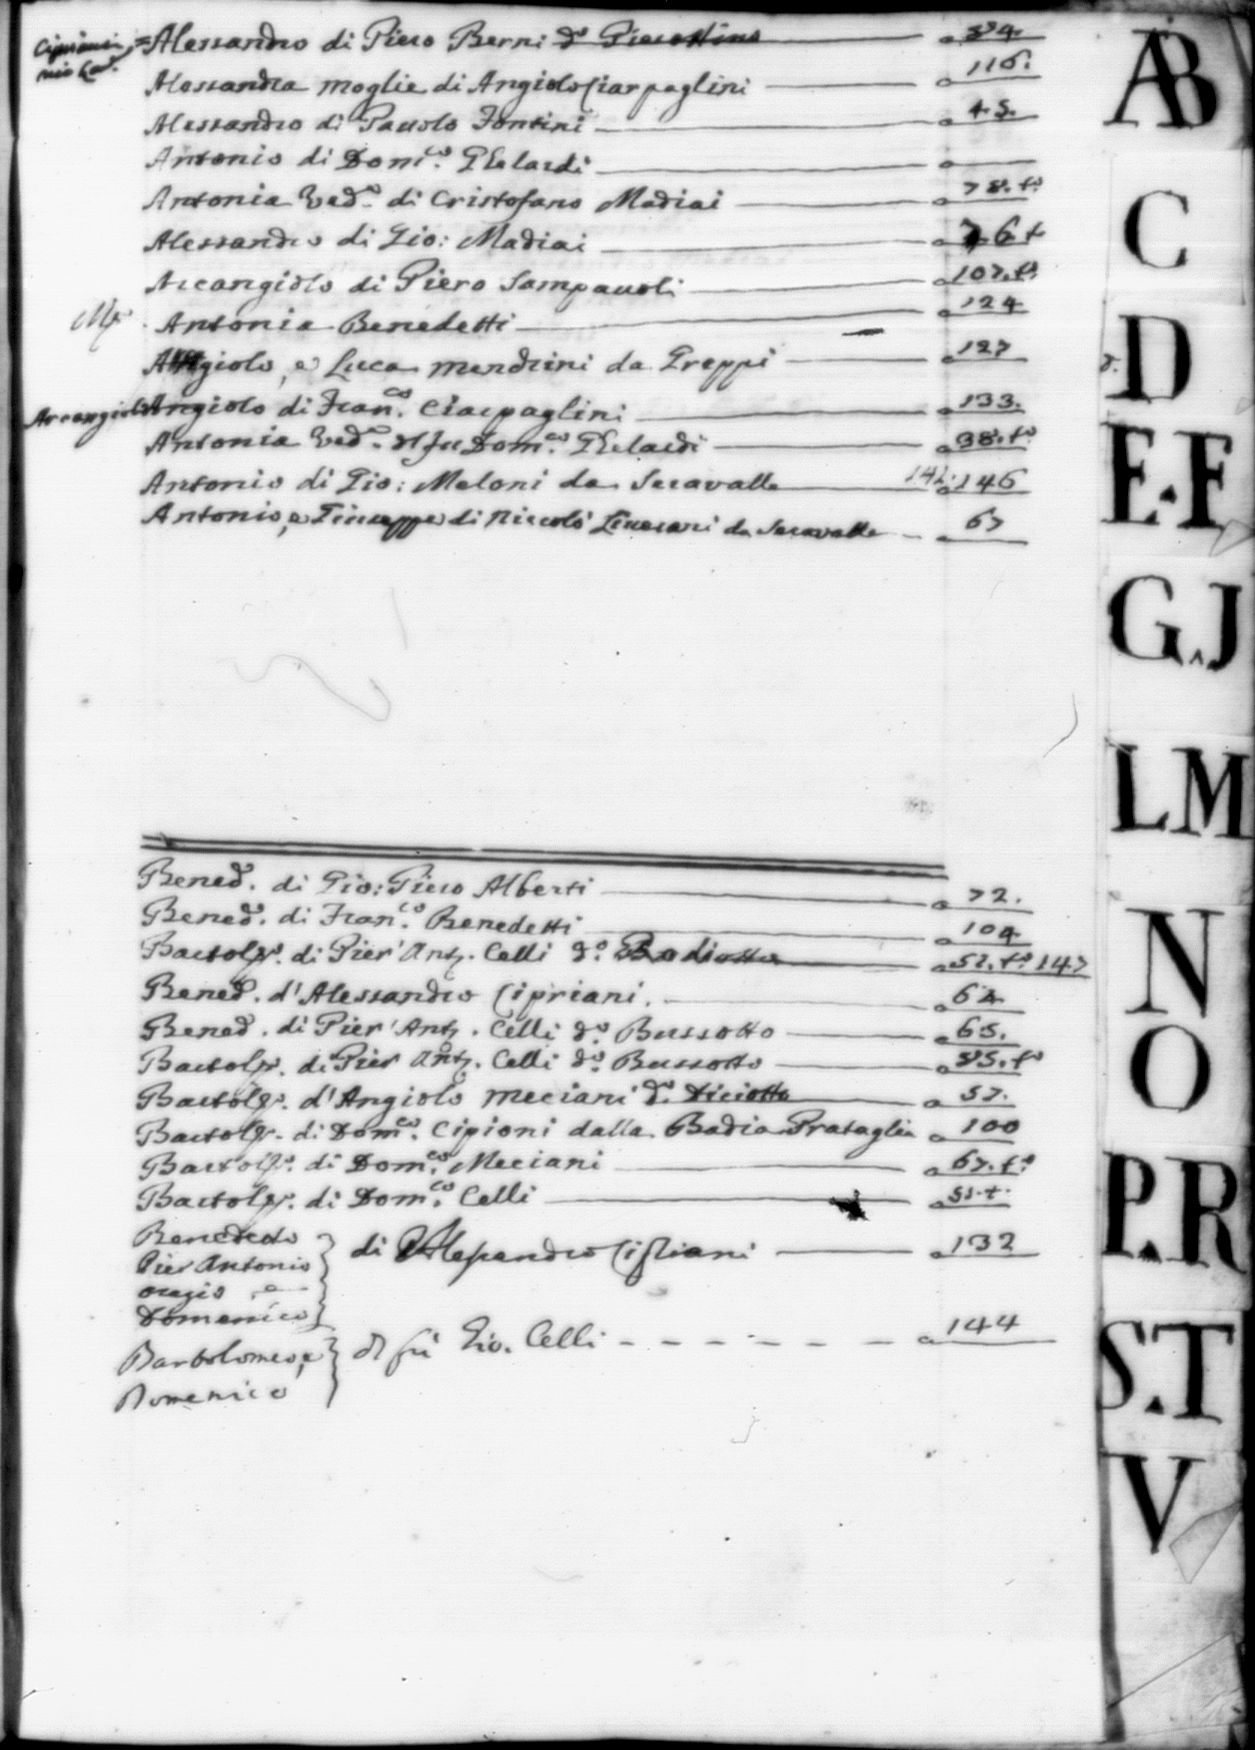 Alessandro di Piero Berni do Pierottino a 54.
Alessandra moglie di Angiolo Ciarpaglini a 116.
Alessandro di Pauolo Fontini a 45.
Antonio di Domco. Ghelardi a
Antonia Veda. di Cristofano Madiai a 78. to
Alessandro di Gio: Madiai a 76 t
Arcangiolo di Piero Sampauoli a 107. to
Antonia Benedetti a 124
Angiolo, e Luca da Greppi a 127
Arcangiolo Angiolo di Franco. Ciarpaglini a 133.
Antonia Veda. di fu Domco. Ghelardi a 38. to
Antonio di Gio: Meloni da Seravalle a 146
Antonio, e Giuseppe di Niccolò da Seravalle a 67
Bened. di Gio: Piero Alberti a 72.
Benedo. di Franco. Benedetti a 104
Bartolo. di Pier' Anto. Celli do. a 52. to 147
Bened. d'Alessandro Cipriani. a 64
Bened. di Pier' Anto. Celli do. Bussotto a 65.
Bartolo. di Pier Anto. Celli do. Bussotto a 55. to
Bartolo. d'Angiolo Meciani do. Diciotto a 57.
Bartolo. di Domco. Cipioni dalla Badia Prataglia a 100
Bartolo. di Domco. Meciani a 67. to
Bartolo. di Domco. Celli a 51. t.
Benedetto
Pier Antonio di Alessandro Cipriani a 132
e
Domenico
Bartolomeo, e di fù Gio. Celli a 144
Domenico
AB
C
D
E.F
G.J
LM
N
O
P.R
S.T
V